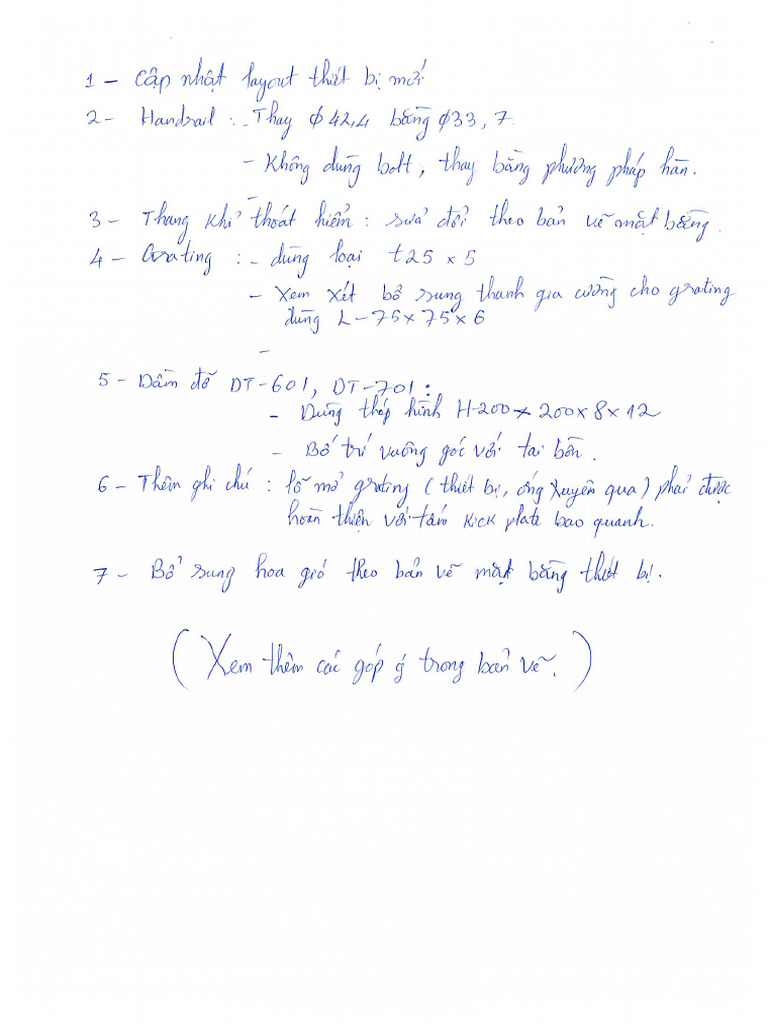 1 – Cập nhật layout thiết bị mới
2 – Handrail : – Thay ϕ 42,4 bằng ϕ33,7.
– Không dùng bolt, thay bằng phương pháp hàn.
–
3 – Thang khỉ thoát hiểm : sửa đổi theo bản vẽ mặt bằng.
4 – Grating : – dùng loại t25 x 5
– Xem xét bổ sung thanh gia cường cho grating
dùng L – 75 x 75 x 6
–
5 – Dầm đỡ DT-601, DT-701 :
– Dùng thép hình H-200 x 200 x 8 x 12
– Bố trí vuông góc với tai bồn.
6 – Thêm ghi chú : lỗ mở grating (thiết bị, ống xuyên qua) phải được
hoàn thiện với tấm kick plate bao quanh.
7 – Bổ sung hoa gió theo bản vẽ mặt bằng thiết bị.
(Xem thêm các góp ý trong bản vẽ.)